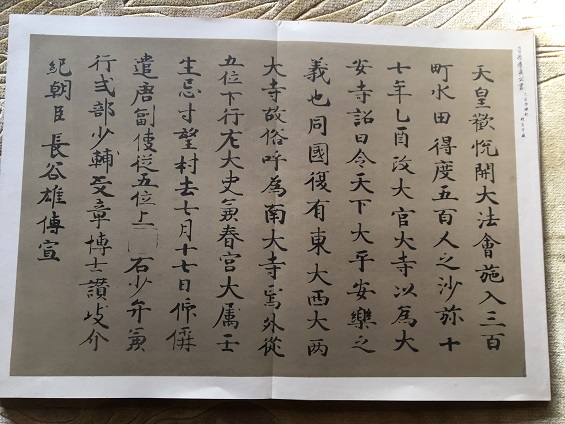 天皇歡悦開大法會施入三百
町水田得度五百人之沙弥十
七年乙酉改大官大寺以為大
安寺詔曰令天下大平安樂之
義也同國復有東大西大两
大寺故俗呼為南大寺焉外從
五位下行左大史兼春宮大属壬
生忌寸望村去七月十七日偁
遣唐副使從五位上 右少弁兼
行式部少輔文章博士讃岐介
紀朝臣長谷雄傳宣